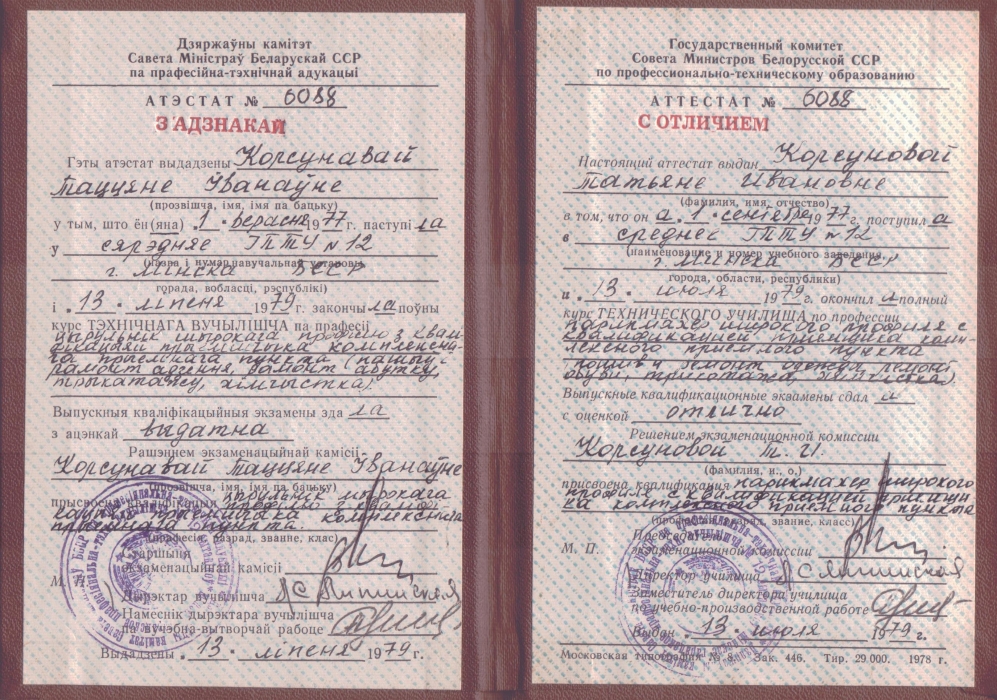 Дзяржаўны камітэт
Савета Міністраў Беларускай ССР
па прафесійна-тэхнічнай адукацыі
АТЭСТАТ № 6088
З АДЗНАКАЙ
Гэты атэстат выдадзены Корсунавай
Таццяне Іванаўне
(прозвішча, імя, імя па бацьку)
у тым, што ён(яна) 1 верасня 1977 г. паступі ла
у сярэдняе ГПТУ № 12
(назва і нумар навучальнай установы
г. Мінска БССР
горада, вобласці, рэспублікі)
і 13 ліпеня 1979 г. закончы ла поўны
курс ТЭХНІЧНАГА ВУЧЫЛІШЧА па прафесіі
цырульнік шырокага профілю з квалі-
фікацыяй прыёмшчыка комплексна-
га прыёмнага пункта (пашыў,
рамонт адзення, рамонт абутку,
трыкатажу, хімчыстка)
Выпускныя кваліфікацыйныя экзамены зда ла
з ацэнкай выдатна
Рашэннем экзаменацыйнай камісіі
Корсунавай Таццяне Іванаўне
(прозвішча, імя, імя па бацьку)
прысвоена кваліфікацыя цырульнік шырокага
профілю з кваліфі-
кацыяй прыёмшчыка комплекснага
прыёмнага пункта.
(прафесія, разрад, званне, клас)
Старшыня
экзаменацыйнай камісіі
М. П.
Дырэктар вучылішча
Намеснік дырэктара вучылішча
па вучэбна-вытворчай рабоце
Выдадзены 13 ліпеня 1979 г.
Государственный комитет
Совета Министров Белорусской ССР
по профессионально-техническому образованию
АТТЕСТАТ № 6088
С ОТЛИЧИЕМ
Настоящий аттестат выдан Корсуновой
Татьяне Ивановне
(фамилия, имя, отчество)
в том, что он а 1 сентября 1977 г. поступил а
в среднее ГПТУ № 12
(наименование и номер учебного заведения,
г. Минска БССР
города, области, республики)
и 13 июля 1979 г. окончил а полный
курс ТЕХНИЧЕСКОГО УЧИЛИЩА по профессии
парикмахер широкого профиля с
квалификацией приемщика комп-
лексного приемного пункта
пошив и ремонт одежды, ремонт
обуви, трикотажа, химчистка)
Выпускные квалификационные экзамены сдал а
с оценкой отлично
Решением экзаменационной комиссии
Корсуновой Т. И.
(фамилия, и., о.)
присвоена квалификация парикмахер широкого
профиля с квалификацией приемщи-
ка комплексного приемного пункта
(профессия, разряд, звание, класс)
Председатель
М. П. экзаменационной комиссии
Директор училища
Заместитель директора училища
по учебно-производственной работе
Выдан 13 июля 1979 г.
Московская типография № 8. Зак. 446. Тир. 29.000. 1978 г.